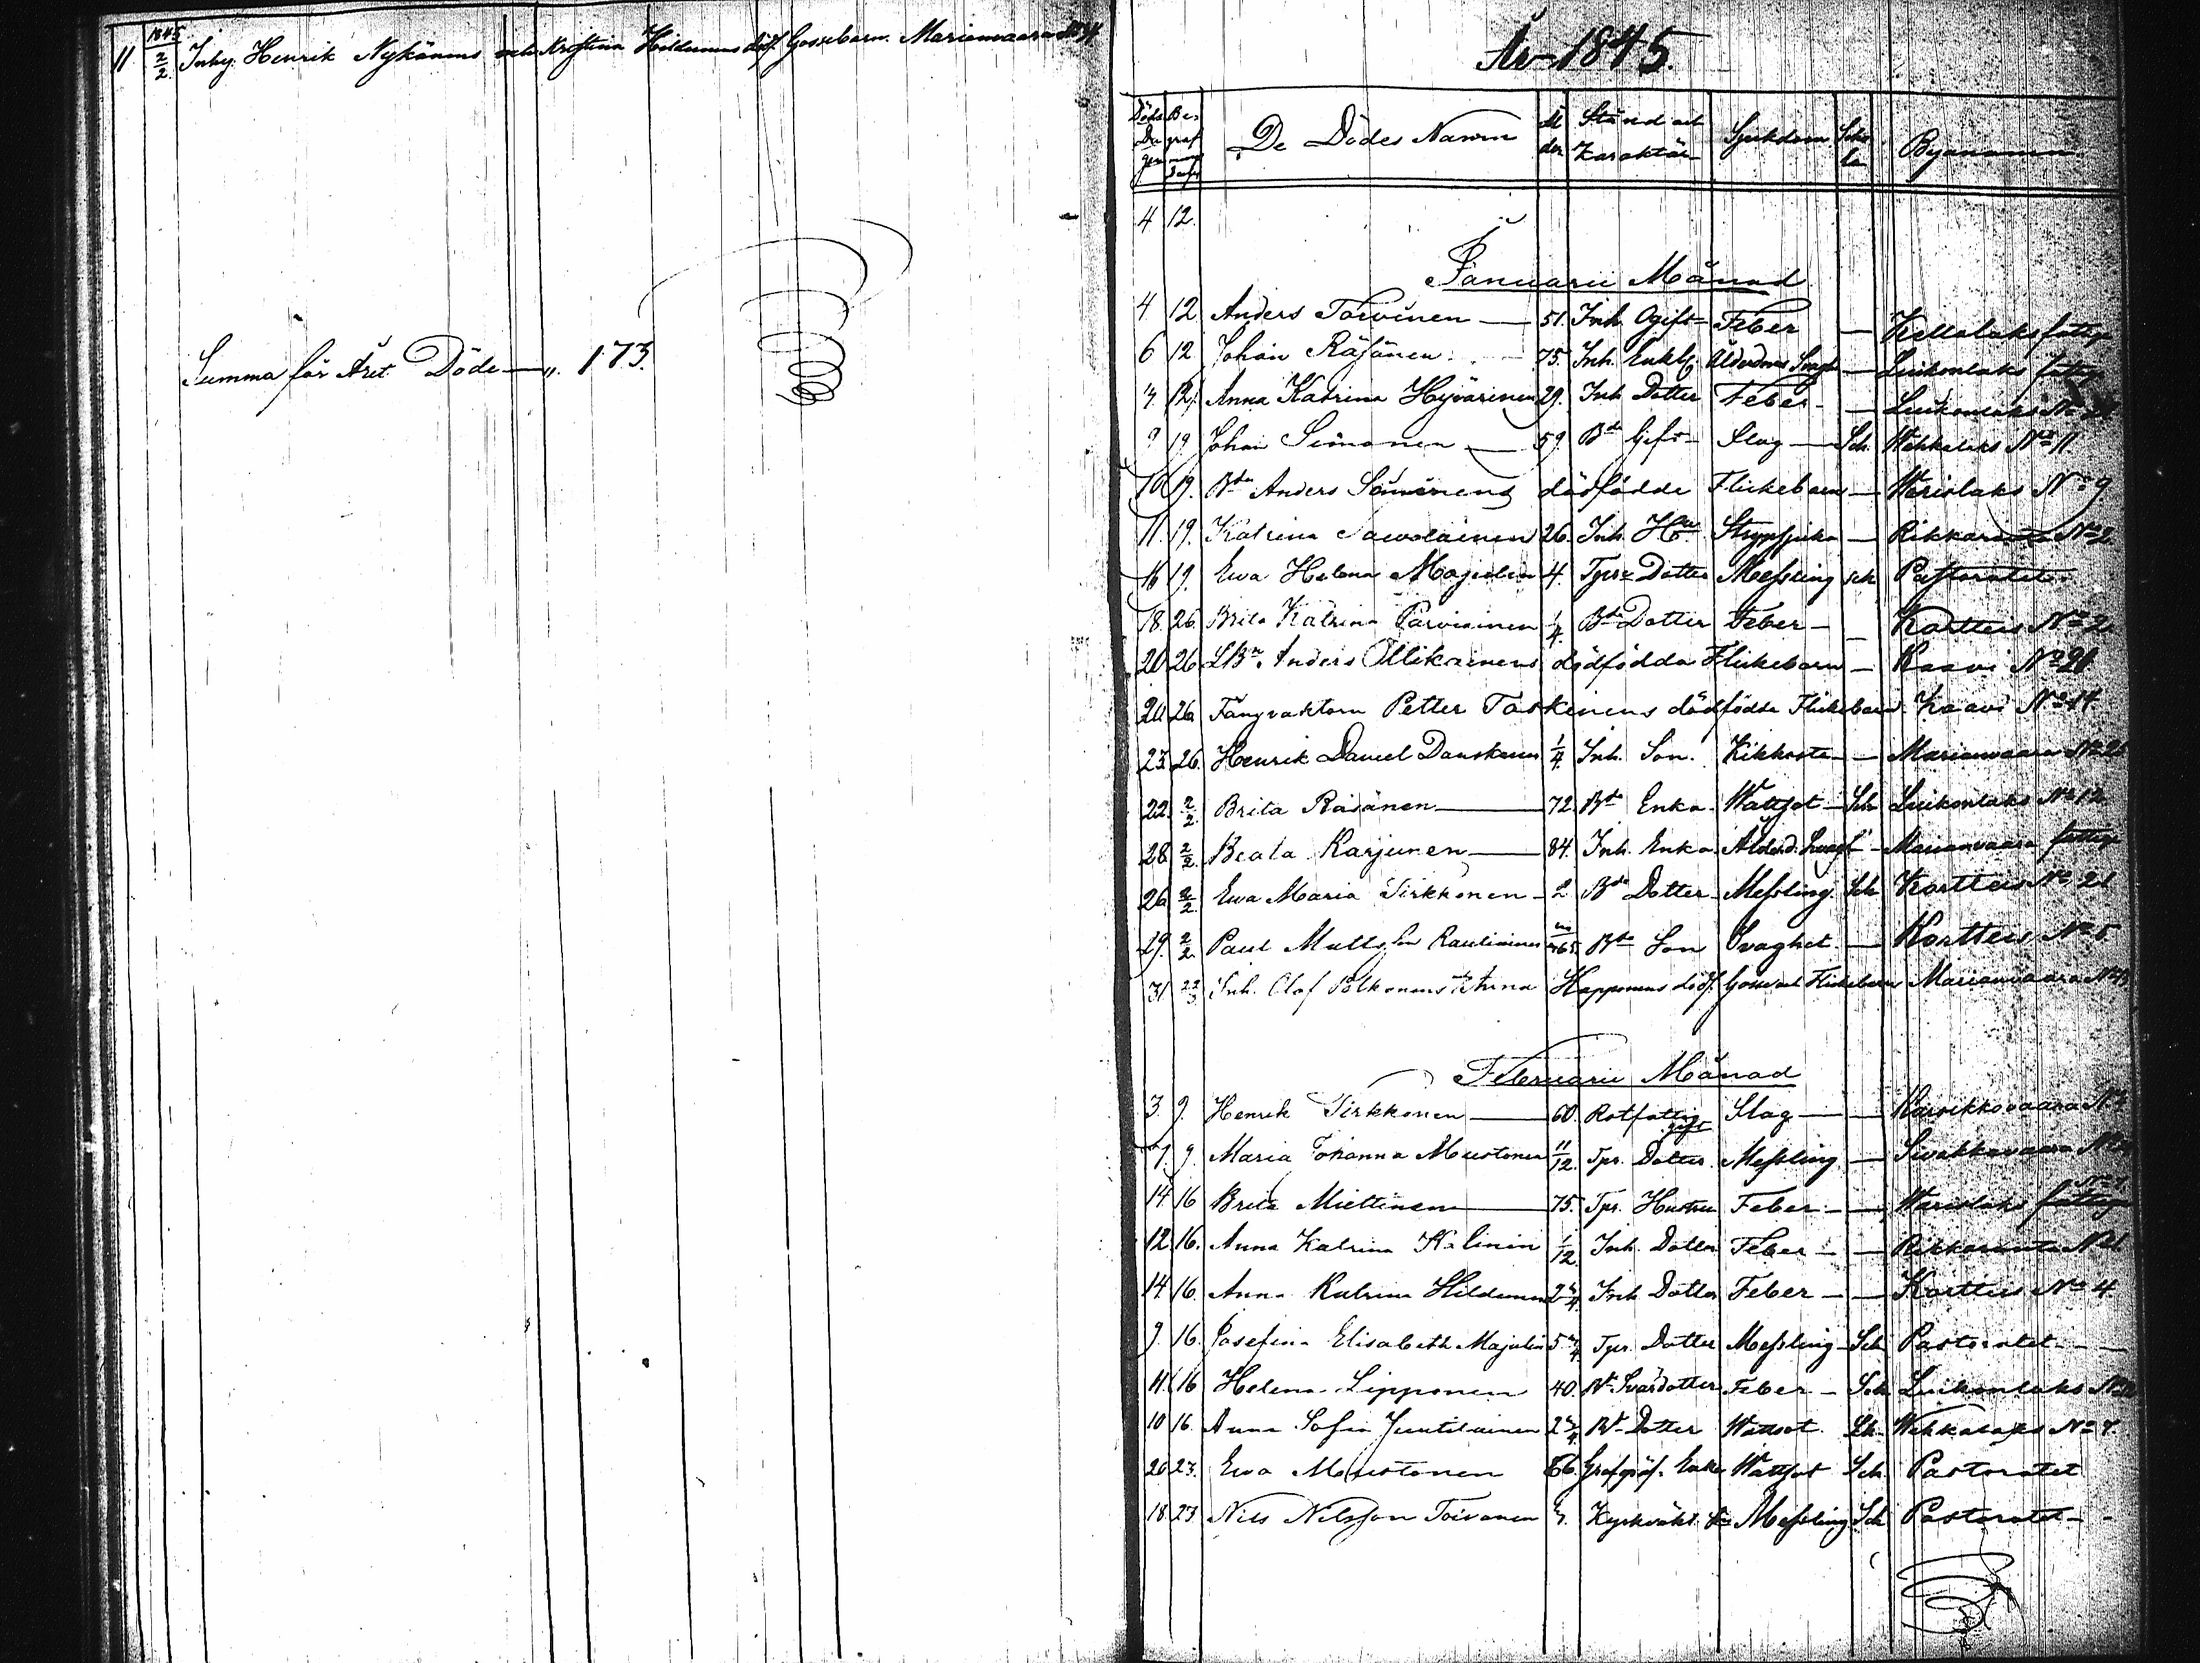 11 1845 2/2 Inhy. Henrik Nykänens och Kristina Hildunens död. Gossebarn. Marianvaara
Summa för Året Döde — „ 173.
År 1845.
Döds Dagen Begrafnings Dagen De Dödes Namn Ålder Stånd och Karaktär Sjukdom Byanamn
4 12.
Januarii Månad
4 12 Anders Toivinen — 51. Inh. Ogift Feber — Kellolaks fattig
6 12 Johan Räsänen — 75. Inh. Enkl. — Luikonlaks fattig
12. Anna Katrina Hyvärinen 29. Inh. Dotter Feber — Luikonlaks
19 Johan Simonen — 59. Bd Gift Slag — Sch. Wehkalaks No 11.
10 19. Bdn Anders dödfödde Flickebarn — Warislaks No 9
11. 19. Katrina Sawolainen 26. Inh. Hu Strypsjuka — Rikkaranta No 2
16 19. Ewa Helena Majulin 4. Tprs Dotter Messling Sch Pastoratet
18. 26. Brita Katrina Parviainen 1/4. Bde Dotter Feber — Kortteis No 2
20 26 LBn. Anders Ollikainens dödfödda Flickebarn — Kaavi No 21
20. 26 Fångvaktorn Petter Toskinens dödfödde Flickebarn Kaavi No 14
23. 26. Henrik Daniel Danskanen 1/4. Inh. Son. Kikhosta — Marianvaara
22. 2/2. Brita Räsänen — 72. Bde Enka Wattsot — Sch Luikonlaks No 12
28. 2/2. Beata Karjunen — 84. Inh. Enka Ålderd. — Marianvaara fattig
26 2/2. Ewa Maria Tirkkonen — 2 Bde Dotter Messling. Sch Kortteis No 21
29. 2/2. Paul Matts son Rautiainen Bde Son Svaghet — Kortteis No 5
31 Inh. Olof Polkonens Anna Happonens död. Gosse och Flickebarn Marianvaara
Februarii Månad
3. 9. Henrik Tirkkonen — 60. Rotfattig gift Slag — Karsikkovaara
7. 9. Maria Johanna Mustonen 11/12. Tpr. Dotter Messling — Sivakkavaara
14. 16 Brita Miettinen — 75. Tpr. Hustru Feber — Warislaks fattig
12. 16. Anna Katrina Kalinin 1/12 Inh. Dotter Feber — Rikkaranta
14. 16. Anna Katrina Hildunen Inh. Dotter Feber — Kortteis No 4
9. 16. Josefina Elisabeth Majulin Tpr. Dotter Messling Sch Pastoratet —
11. 16 Helena Lipponen 40. Bd Svärdotter Feber — Sch Luikonlaks
10 16. Anna Sofia Juutilainen Bd Dotter Wattsot Sch Wehkalaks No 7.
20. 23. Ewa Mustonen 66. Enka Wattsot Sch. Pastoratet
18. 23 Nils Nilsson Toivanen Kyrkväkt. Messling Sch Pastoratet —